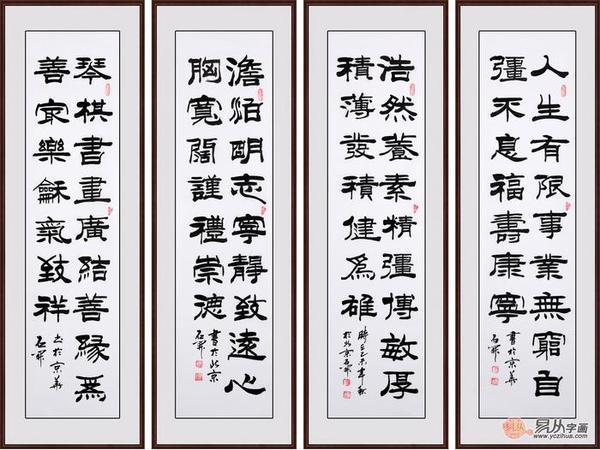 人生有限事業無窮自
彊不息福壽康寧
書於京華
浩然養素精彊博敏厚
積薄發積健爲雄
澹泊明志寧靜致遠心
胸寬闊謹禮崇德
書於北京
琴棋書畫廣結善緣爲
善最樂龢氣致祥
书於京華
易从字画
www.yczihua.com